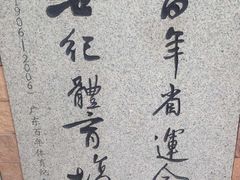 百年省運
世纪體育
1906-2006
广东百年体育